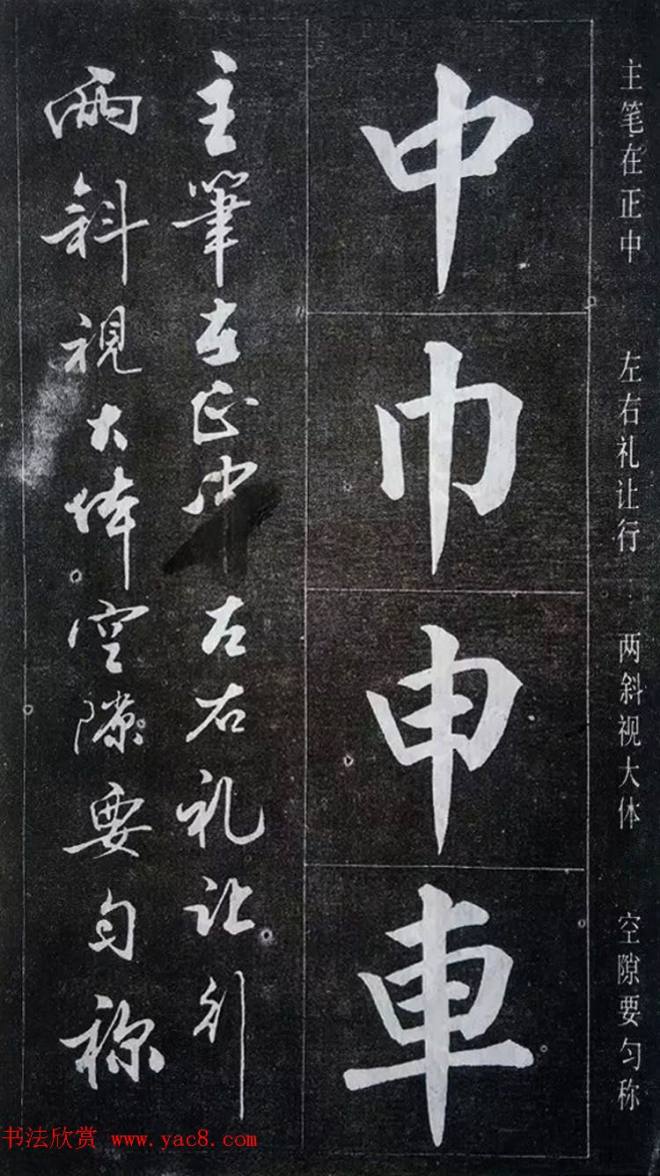 主笔在正中 左右礼让行 两斜视大体 空隙要匀称
中巾申車
主筆在正中左右礼让行
两斜視大体空隙要匀称
书法欣赏 www.yac8.com